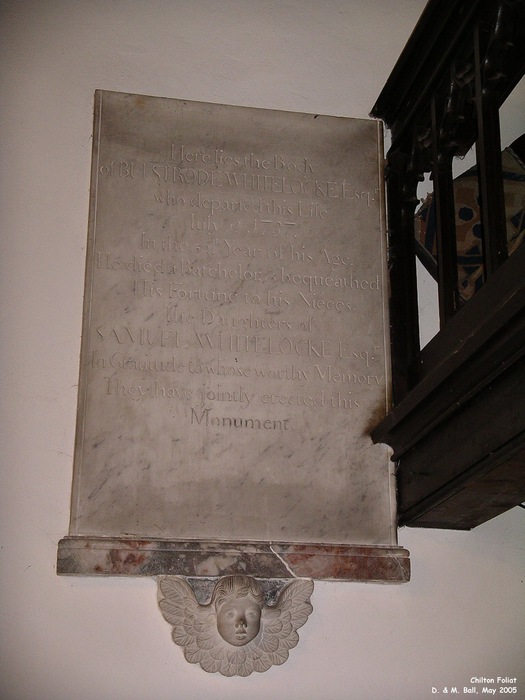 Here lies the Body
of BULSTRODE WHITELOCKE Esqr.
who departed this Life
July 1737
In the Year of his Age.
He died a Batchelor, & bequeathed
His Fortune to his Nieces
the Daughters of
SAMUEL WHITELOCKE Esqr.
In Gratitude to whose worthy Memory
They have jointly erected this
Monument.
Chilton Foliat
D. & M. Ball, May 2005